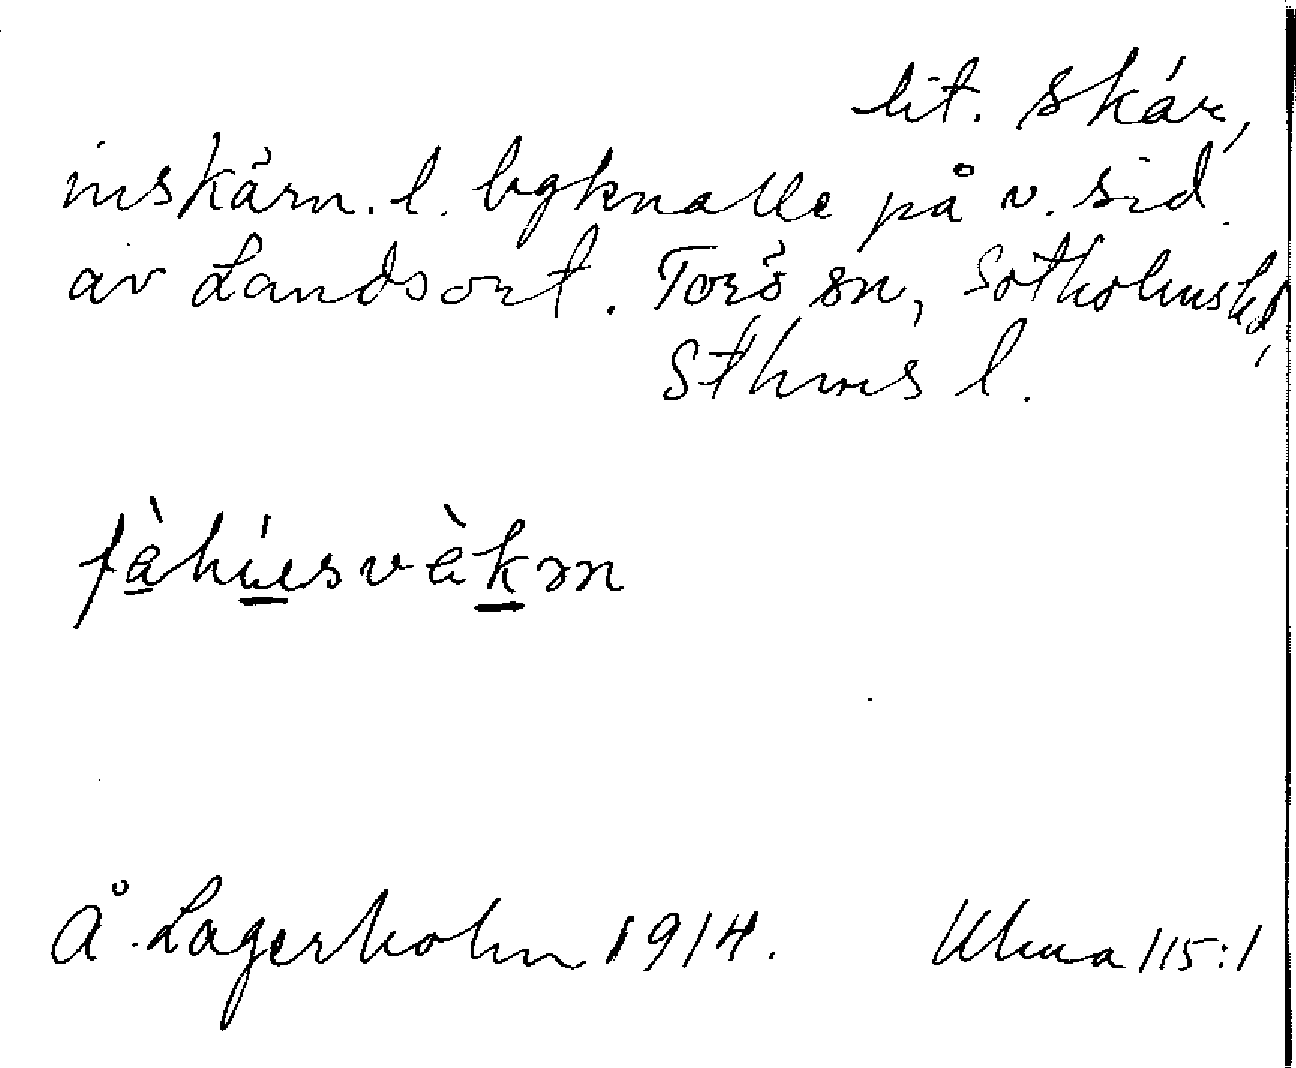 lit. skär,
inskärn. l. bgknalle på v. sid.
av Landsort. Torö sn, Sotholms hd,
Sthms l.
fàhúesvàkən
Å. Lagerholm 1914.
Ulma 115:1